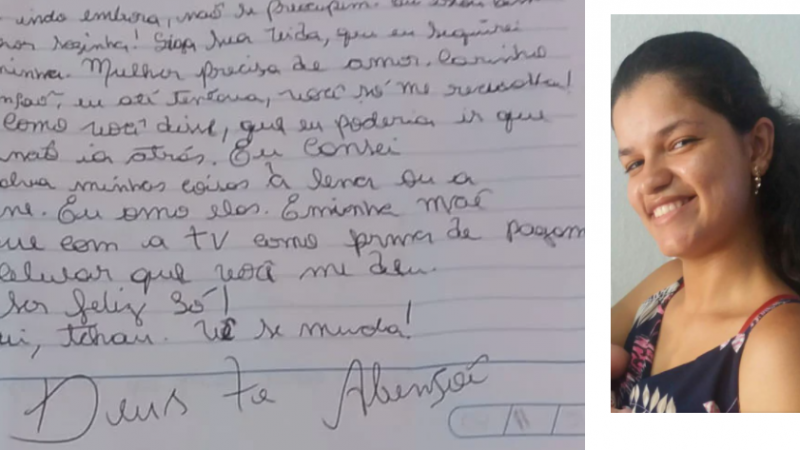 indo embora, não se preocupem. Eu
sozinha! Siga sua vida, que eu seguirei
minha. Mulher precisa de amor, carinho
eu até tentava, você só me
como você disse, que eu poderia ir que
não ia atrás. Eu Consei
minhas coisas à lena ou a
ne. Eu amo elas. E minha maê
ue com a TV como forma de pagam
celular que você me deu.
ser feliz só!
ui, tchau. Vê se muda!
Deus te Abençoê